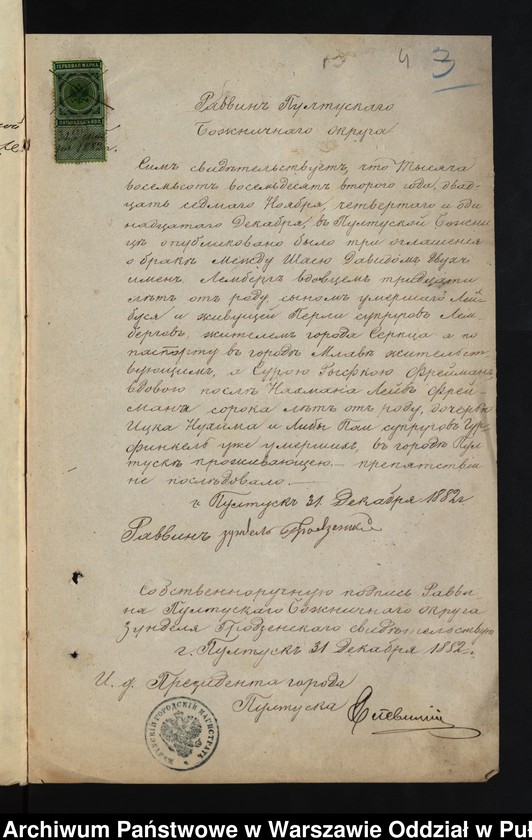 ГЕРБОВАЯ МАРКА
1882 г.
43
Раввинъ Пултускаго
Божничнаго округа
Симъ свидѣтельствуетъ, что тысяча
восемьсотъ восемьдесятъ втораго года, двад-
цать седмаго Ноября, четвертаго и оди
надцатаго Декабря, въ Пултуской Божни
цѣ опубликовано было три оглашенія
о бракѣ между Шаею Давидомъ двухъ
именъ Лембергъ вдовцемъ тридцати
лѣтъ отъ роду, сыномъ умершаго Лей-
буся и живущей Перли супруговъ Лем-
берговъ, жителемъ города Серпца а по
паспорту въ городѣ Млавѣ жительст
вующимъ, а Сурою Фрейманъ
вдовою послѣ Нахмана Лейбы Фрей-
мана сорока лѣтъ отъ роду, дочерью
Ицка и Либы супруговъ Гур-
финкель уже умершихъ, въ городѣ Пул-
тускѣ проживающею — препятствій
не послѣдовало. —
г. Пултускъ 31 Декабря 1882 г.
Раввинъ Зундель Гродзенскій
Собственноручную подпись Равви-
на Пултускаго Божничнаго округа
Зунделя Гродзенскаго свидѣтельствую
г. Пултускъ 31 Декабря 1882 г.
И. д. Президента города
Пултуска
ГОРОДСКІЙ МАГИСТРАТЪ
Archiwum Państwowe w Warszawie Oddział w Puł